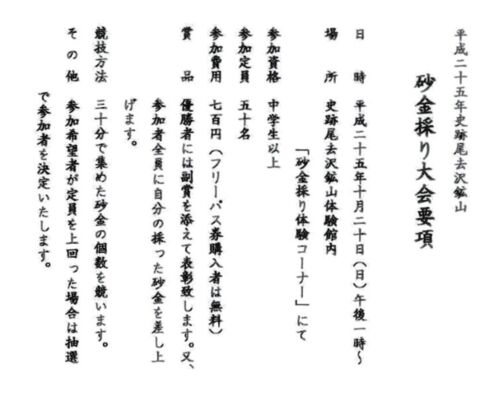 平成二十五年史跡尾去沢鉱山
砂金採り大会要項
日時 平成二十五年十月二十日（日）午後一時～
場所 史跡尾去沢鉱山体験館内
「砂金採り体験コーナー」にて
参加資格 中学生以上
参加定員 五十名
参加費用 七百円（フリーパス券購入者は無料）
賞品 優勝者には副賞を添えて表彰致します。又、
参加者全員に自分の採った砂金を差し上
げます。
競技方法 三十分で集めた砂金の個数を競います。
その他 参加希望者が定員を上回った場合は抽選
で参加者を決定いたします。